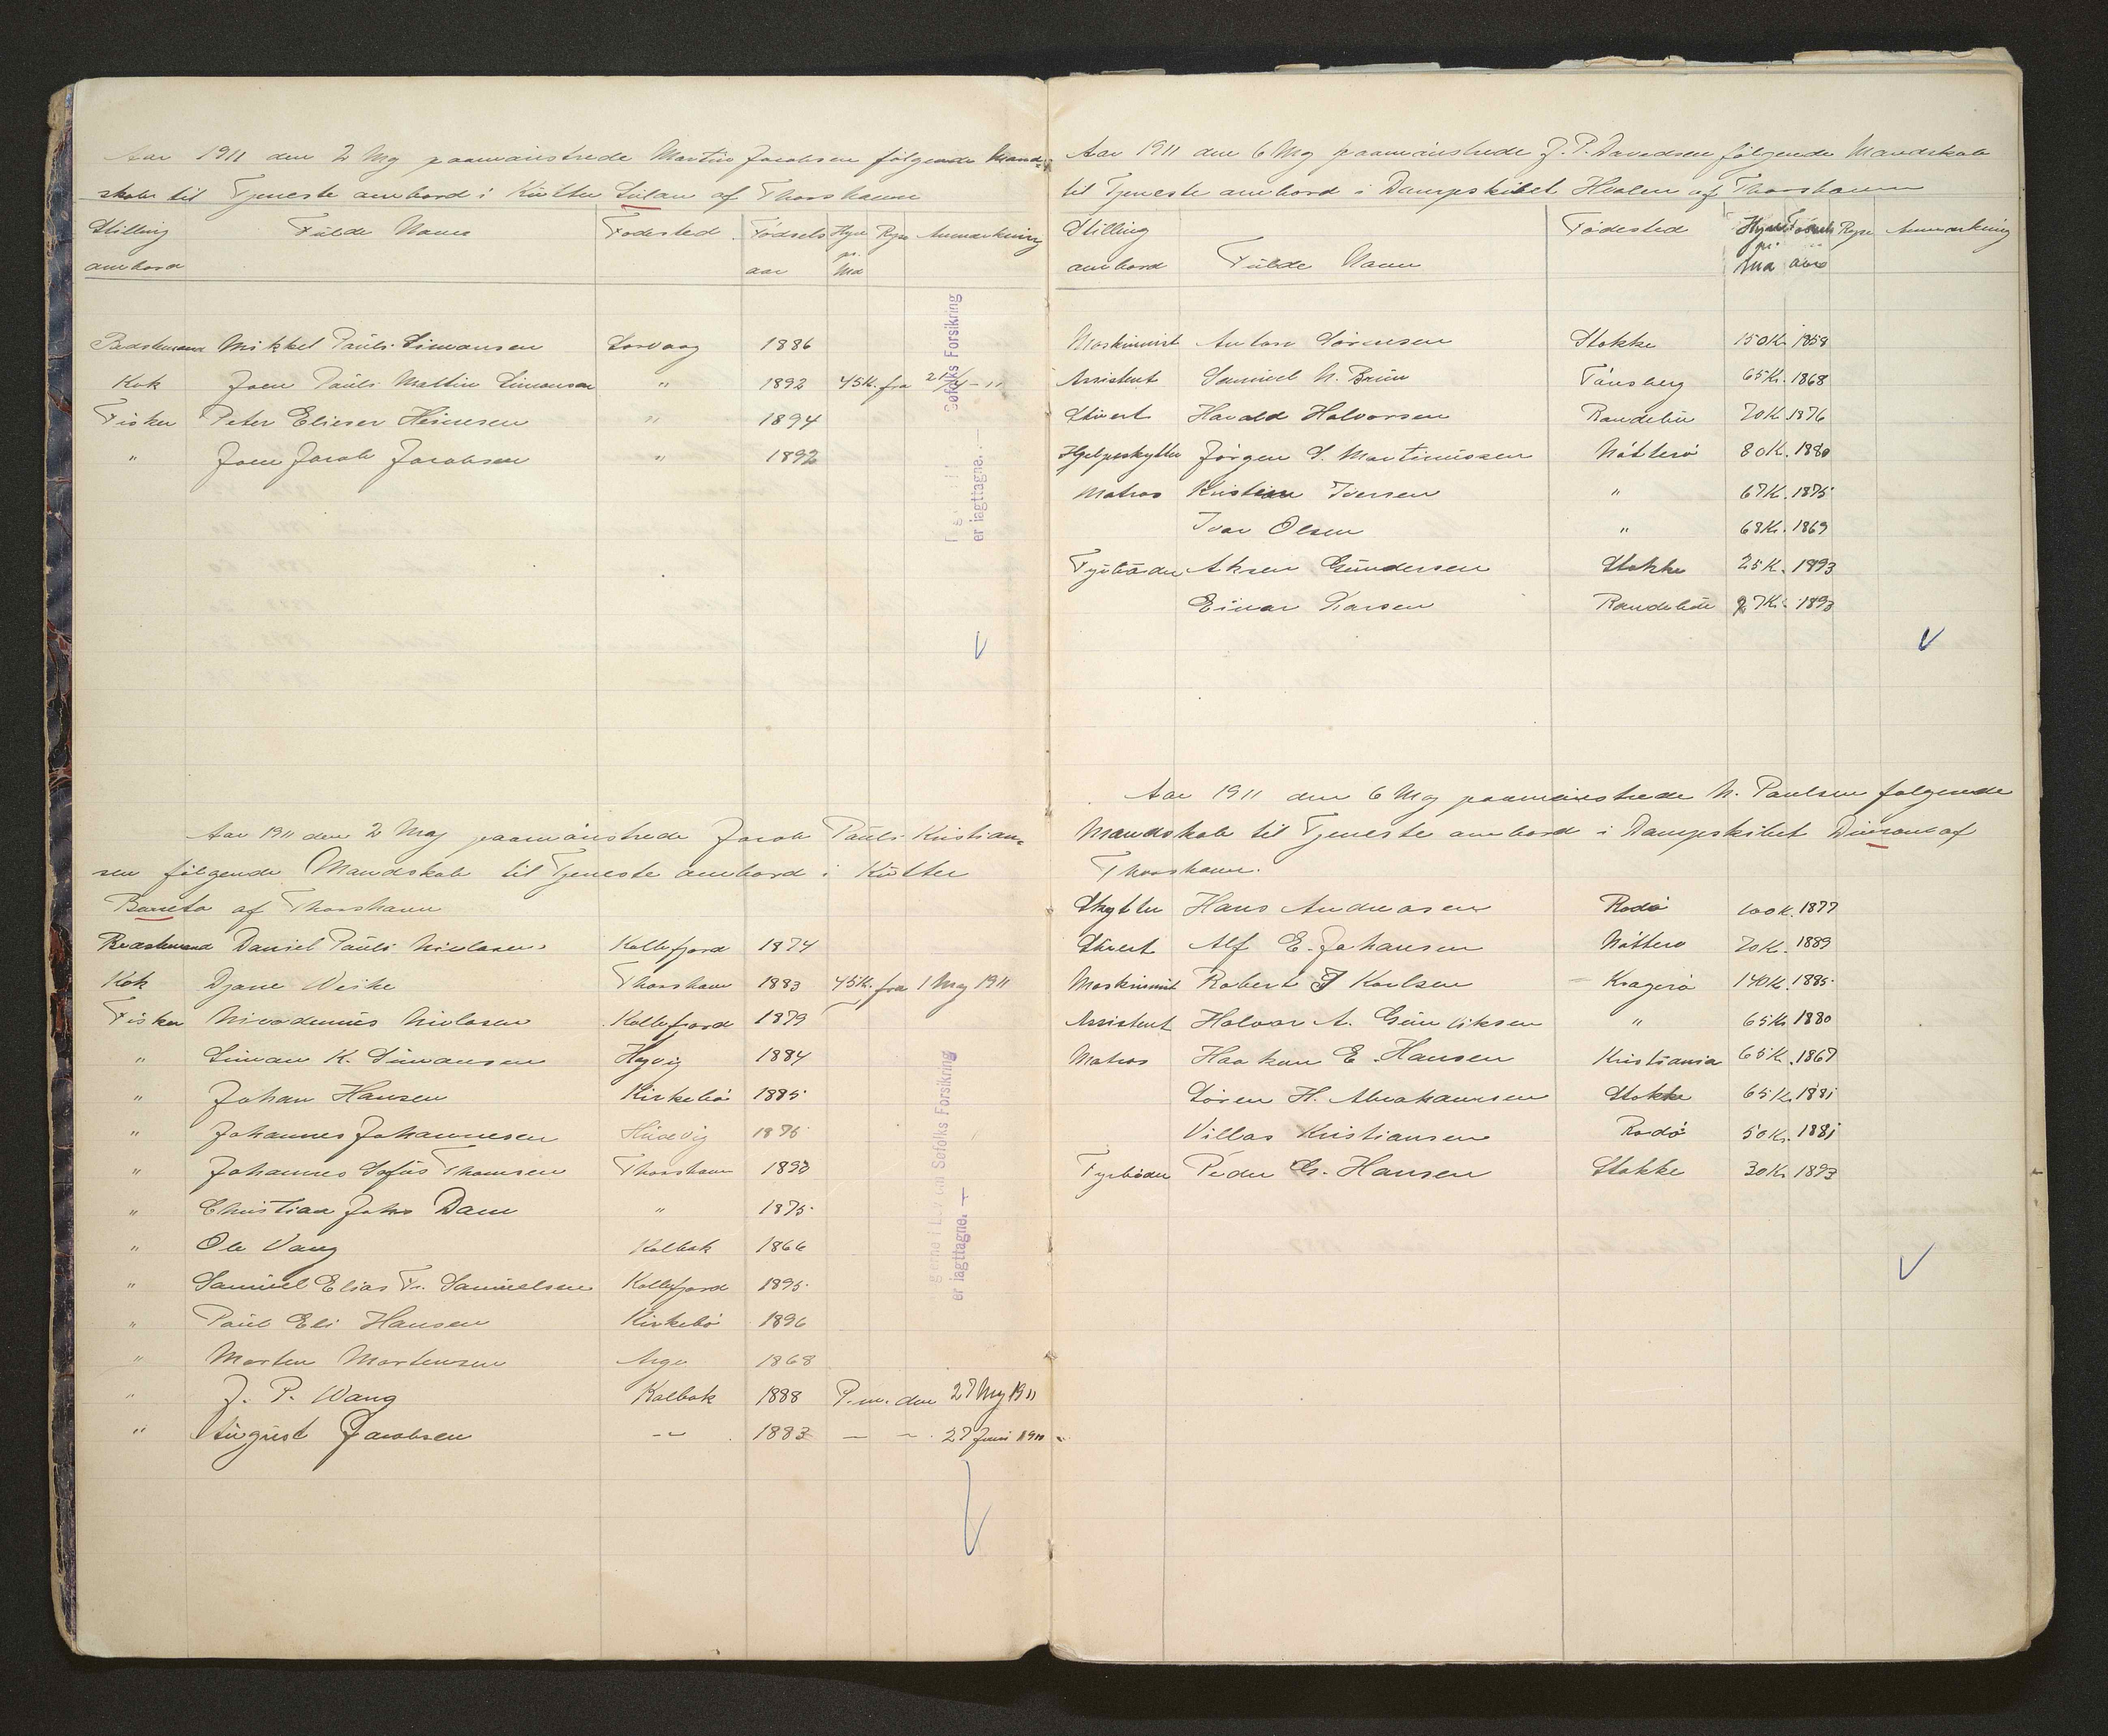 Aar 1911 den 2 Maj paamönstrede Martin Jacobsen følgende Mand-
skab til Tjeneste ombord i Kutter Sulan af Thorshavn
Stilling Fulde Navn Fødested Fødsels Hyre Rejse Anmærkning
ombord aar pr. Md
Bedstemand Mikkel Pauli Simonsen Sorvaag 1886
Kok Joen Pauli Mattin Simonsen " 1892 45 K. fra
Fisker Peter Elieser Heinesen " 1894
" Joen Jacob Jacobsen " 1892
Søfolks Forsikring
er iagttagne. —
Aar 1911 den 2 Maj paamönstrede Jacob Pauli Kristian-
sen følgende Mandskab til Tjeneste ombord i Kutter
af Thorshavn
Bedstemand Daniel Pauli Niclasen Kollefjord 1874
Kok Djone Weihe Thorshavn 1883 45 K. fra 1 Maj 1911
Fisker Nicodemus Niclasen Kollefjord 1879
" Simon K. Simonsen Hojvig 1884
" Johan Hansen Kirkebö 1885
" Johannes Johannesen 1876
" Johannes Sofus Thomsen Thorshavn 1893
" Christian Johs Dam " 1875
" Ole Vang Kalbak 1866
" Samuel Elias Fr. Samuelsen Kollefjord 1895
" Paul Eli Hansen Kirkebö 1896
" Morten Mortensen Arge 1868
" J. P. Wang Kalbak 1888 P.m. den 27 Maj 1911
" August Jacobsen -"- 1883 — " 27 Juni 1911
gerne i Lov om Søfolks Forsikring
er iagttagne. —
Aar 1911 den 6 Maj paamönstrede J. P. Davidsen følgende Mandskab
til Tjeneste ombord i Dampskibet Hvalen af Thorshavn
Stilling Fulde Navn Fødested Hyre Fødsels Rejse Anmærkning
ombord pr. Md aar
Maskinist Anton Sörensen Stokke 150 K. 1859
Assistent Samuel N. Bruun Tönsberg 65 K. 1868
Stuert Harald Halvorsen Ramdebu 70 K. 1876
Hjelpeskytter Jörgen S. Martinussen Nötterö 80 K. 1880
Matros Kristian Iversen " 67 K. 1875
Ivar Olsen " 68 K. 1869
Fyrböder Aksen Gundersen Stokke 25 K. 1893
Einar Larsen Ramdebu 27 K. 1893
Aar 1911 den 6 Maj paamönstrede N. Paulsen følgende
Mandskab til Tjeneste ombord i Dampskibet Dimon af
Thorshavn.
Skytter Hans Andreasen Rodö 100 K. 1877
Stuert Alf E. Johansen Nötterö 70 K. 1889
Maskinist Robert J Karlsen Kragerö 140 K. 1885
Assistent Halvor A. " 65 K. 1880
Matros Haakon E. Hansen Kristiania 65 K. 1867
Sören H. Abrahamsen Stokke 65 K. 1881
Villas Kristiansen Rodö 50 K. 1881
Fyrböder Peder G. Hansen Stokke 30 K. 1893